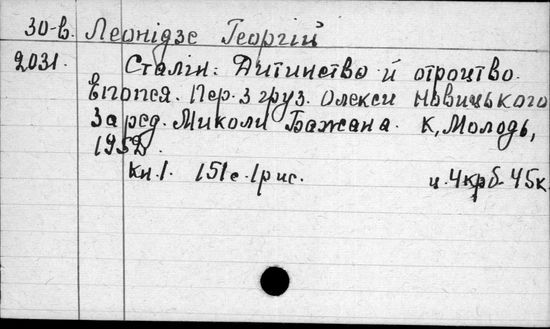 30-в. Леонідзе Георгій
2031. Сталін: Дитинство й отроцтво.
Епопея. Пер. з груз. Олекси Новицького
За ред. Миколи Бажана. К, Молодь,
1952.
Кн.1. 151с. 1рис. ц. 4крб. 45к.